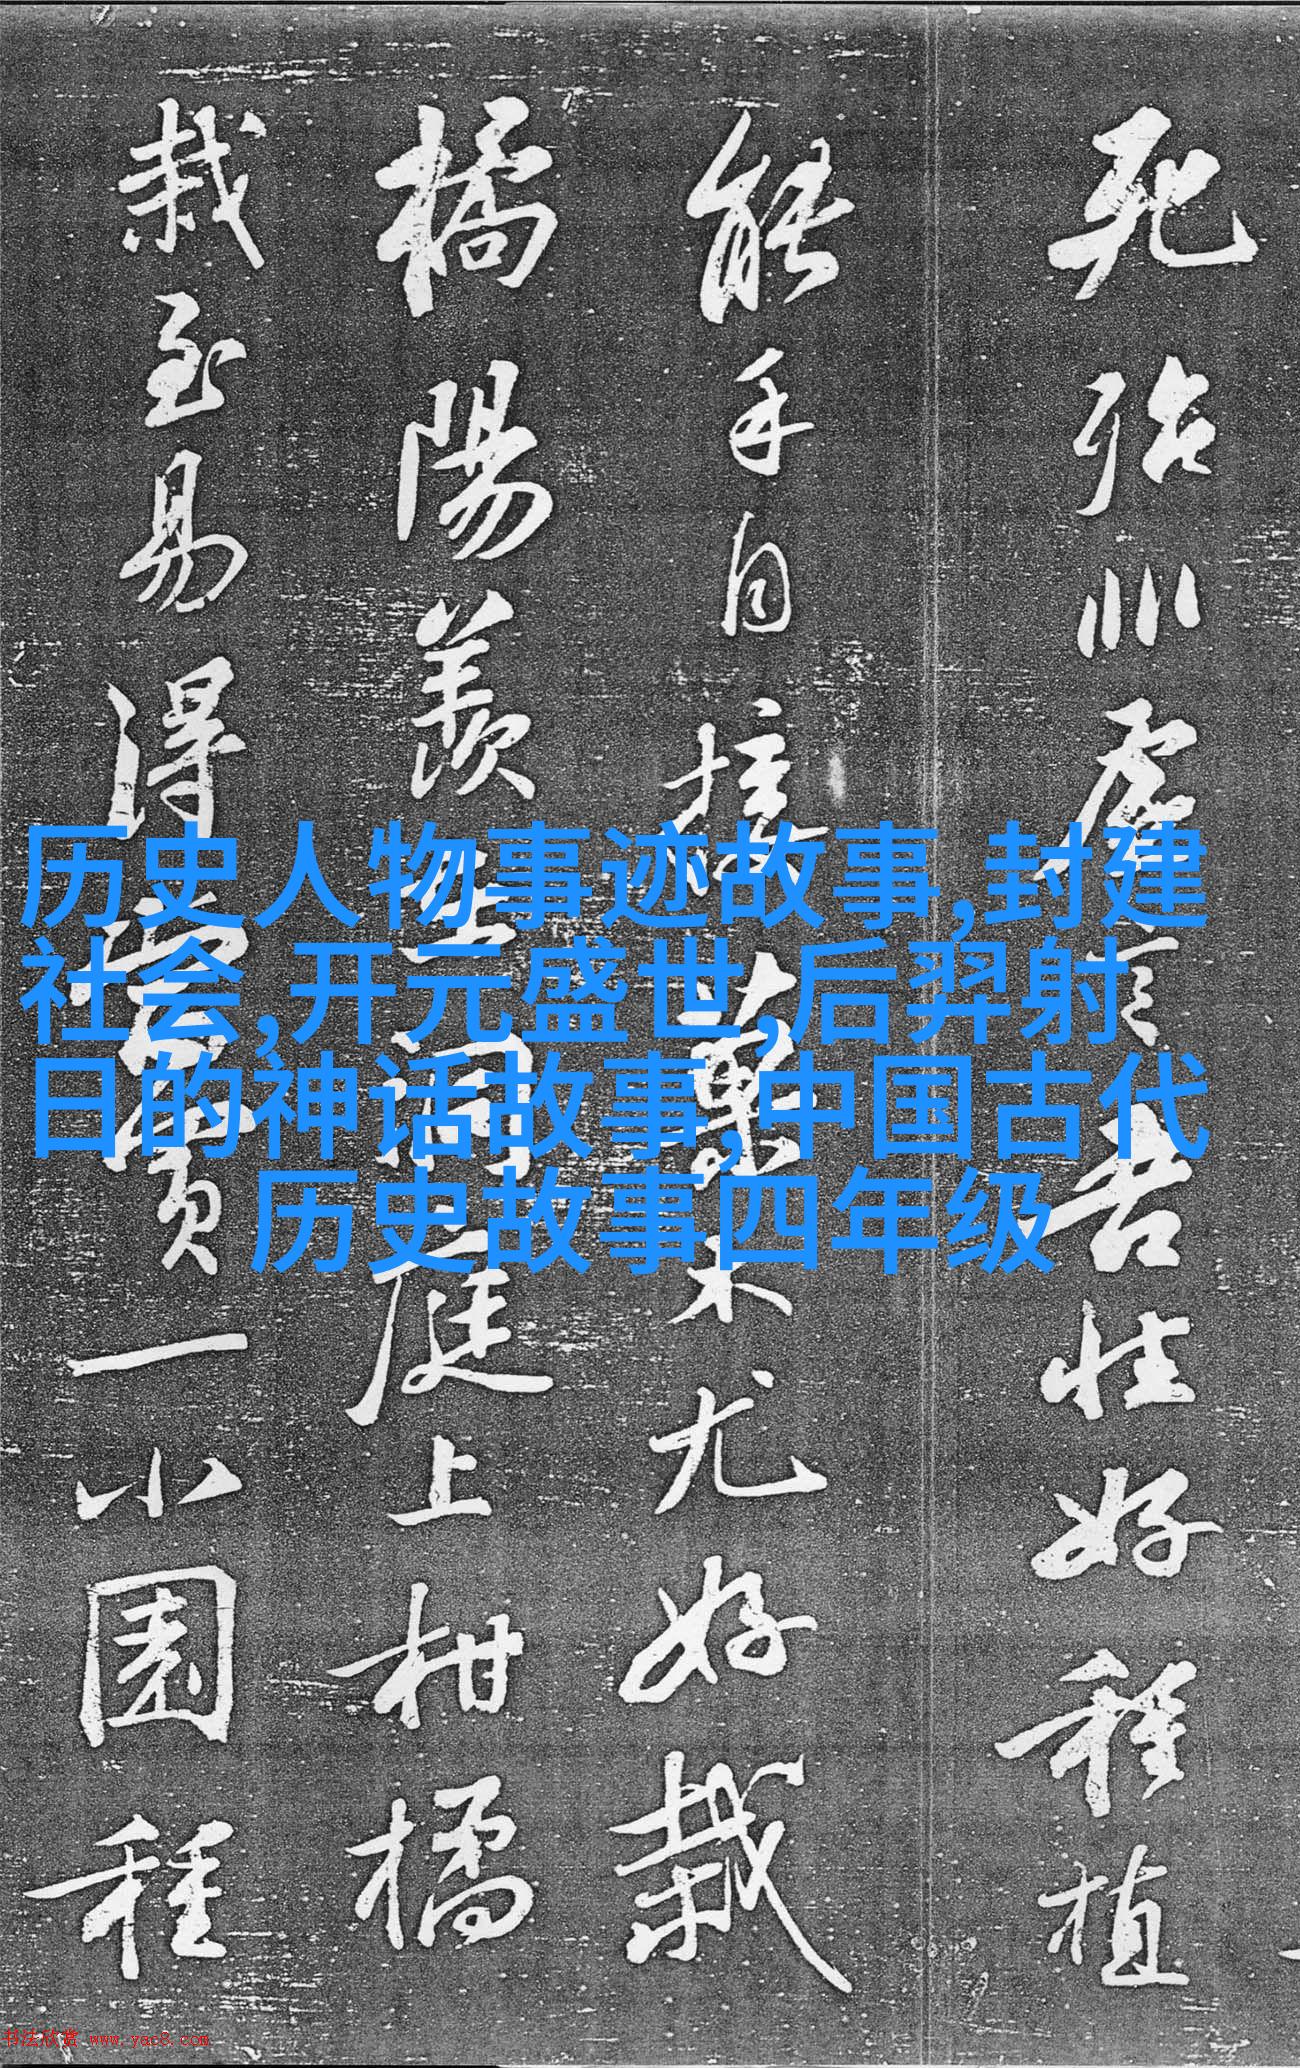 死殆非虚言吾性好種植
能手自接菓木尤好栽
橘陽羨在洞庭上柑橘
栽至易得當買一小園種
历史人物事迹故事,封建
社会,开元盛世,后羿射
日的神话故事,中国古代
历史故事四年级
书法欣赏 www.yac8.com